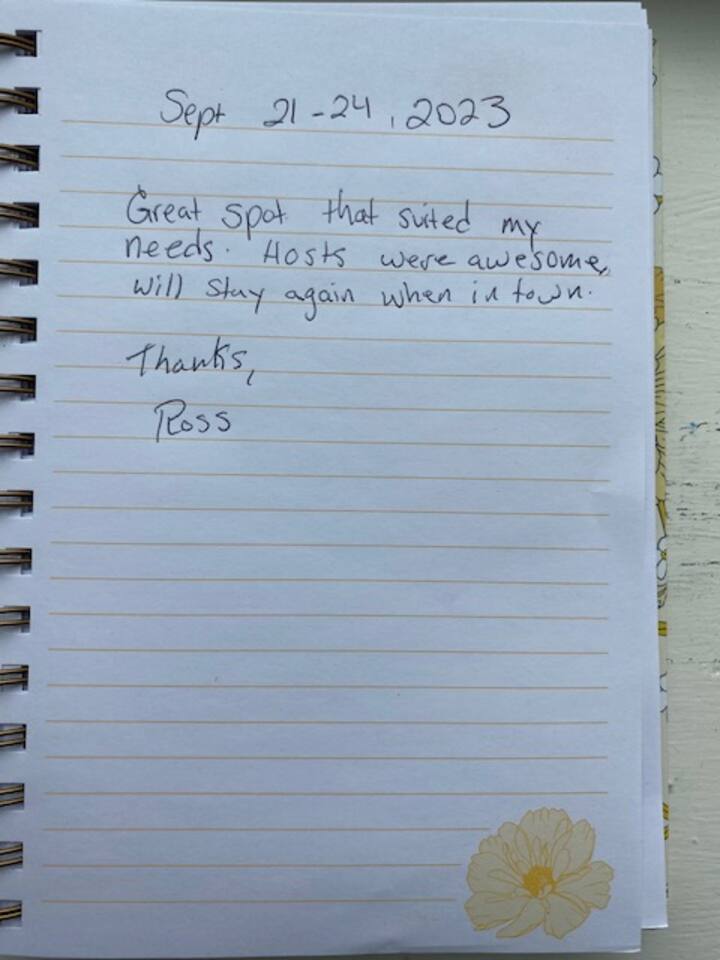 Sept 21-24, 2023
Great spot that suited my
needs. Hosts were awesome,
will stay again when in town.
Thanks,
Ross